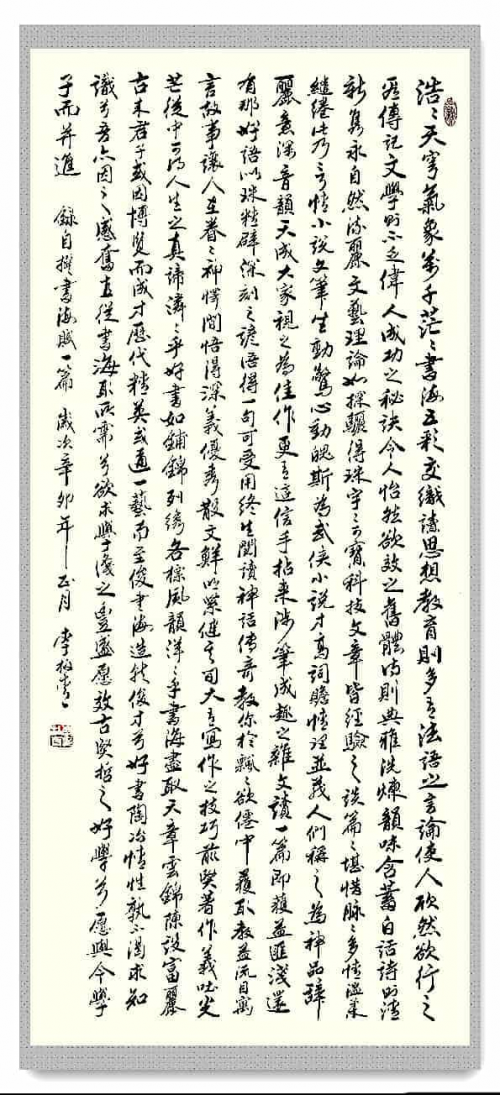 浩〻天穹氣象萬千茫〻書海五彩交織讀思想教育則多有法語之言論使人欣然欲行之
傳記文學則不乏偉人成功之秘訣令人怡然欲效之舊體詩則典雅洗煉韻味含蓄白話詩則清
新雋永自然流麗文藝理論如探驪得珠字〻可寶科技文章皆經驗之談篇〻堪惜脉〻多情溫柔
繾綣此乃言情小說文筆生動驚心動魄斯為武俠小說才高詞贍情理並茂人們稱之為神品辭
麗意深音韻天成大家視之為佳作更有這信手拈來涉筆成趣之雜文讀一篇即獲益匪淺還
有那妙語如珠精辟深刻之諺語得一句可受用終生閱讀神話傳奇教你於飄〻欲僊中獲取教益流目寓
言故事讓人在眷〻神愕間悟得深義優秀散文鮮此累健之句大有寫作之技巧前賢著作義吐光
芒從中可得人生之真諦潾〻乎好書如鋪錦列繡各標風韻洋〻乎書海盡取天章雲錦陳設富麗
古來君子或因博覽而成才歷代精英或通一藝而至俊書海造就俊才兮好書陶冶情性孰不渴求知
識兮吾亦因之感奮直從書海取所需兮欲求學識之豐盛愿效古賢哲之好學兮愿與今學
子而并進 錄自撰書海賦一篇 歲次辛卯年正月 李